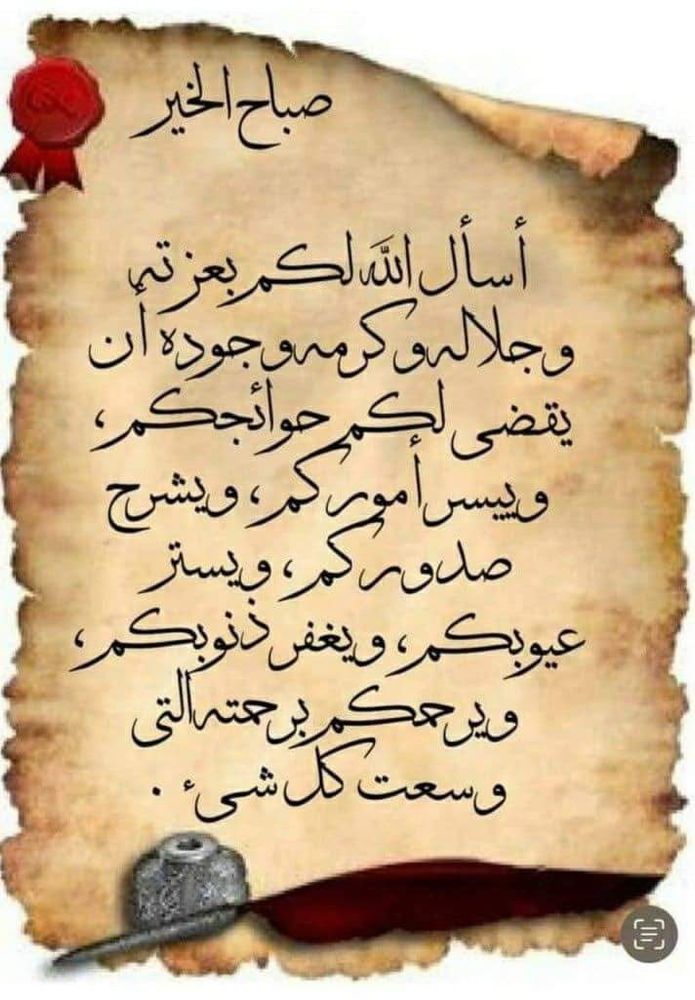 صباح الخير
أسأل الله لكم بعزته
وجلاله وكرمه وجوده أن
يقضى لكم حوائجكم،
وييسر أموركم، ويشرح
صدوركم، ويستر
عيوبكم، ويغفر ذنوبكم،
ويرحمكم برحمته التى
وسعت كل شىء .